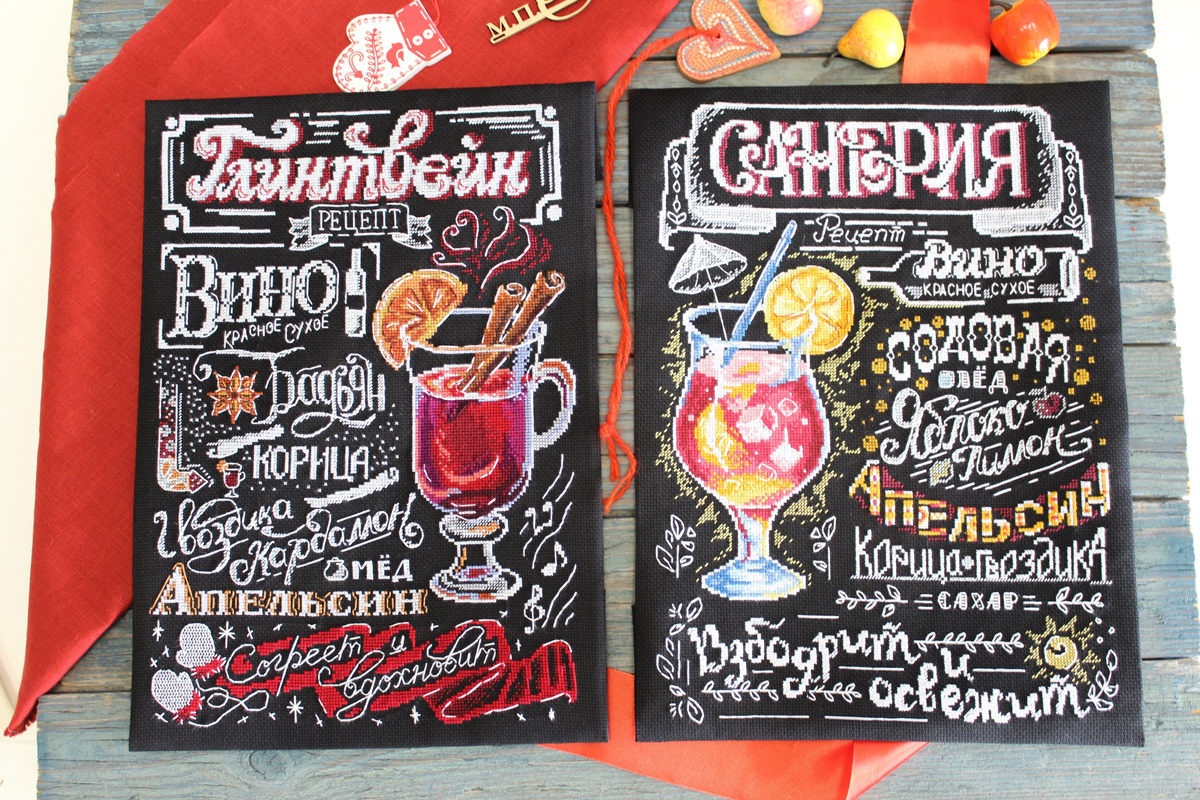 М.П
Глинтвейн
РЕЦЕПТ
Вино
КРАСНОЕ СУХОЕ
Бадьян
КОРИЦА
Гвоздика
Кардамон
МЁД
Апельсин
Согреет и
вдохновит
САНГРИЯ
Рецепт
Вино
КРАСНОЕ СУХОЕ
СОДОВАЯ
ЛЁД
Яблоко
Лимон
Апельсин
Корица•Гвоздика
САХАР
Взбодрит и
освежит